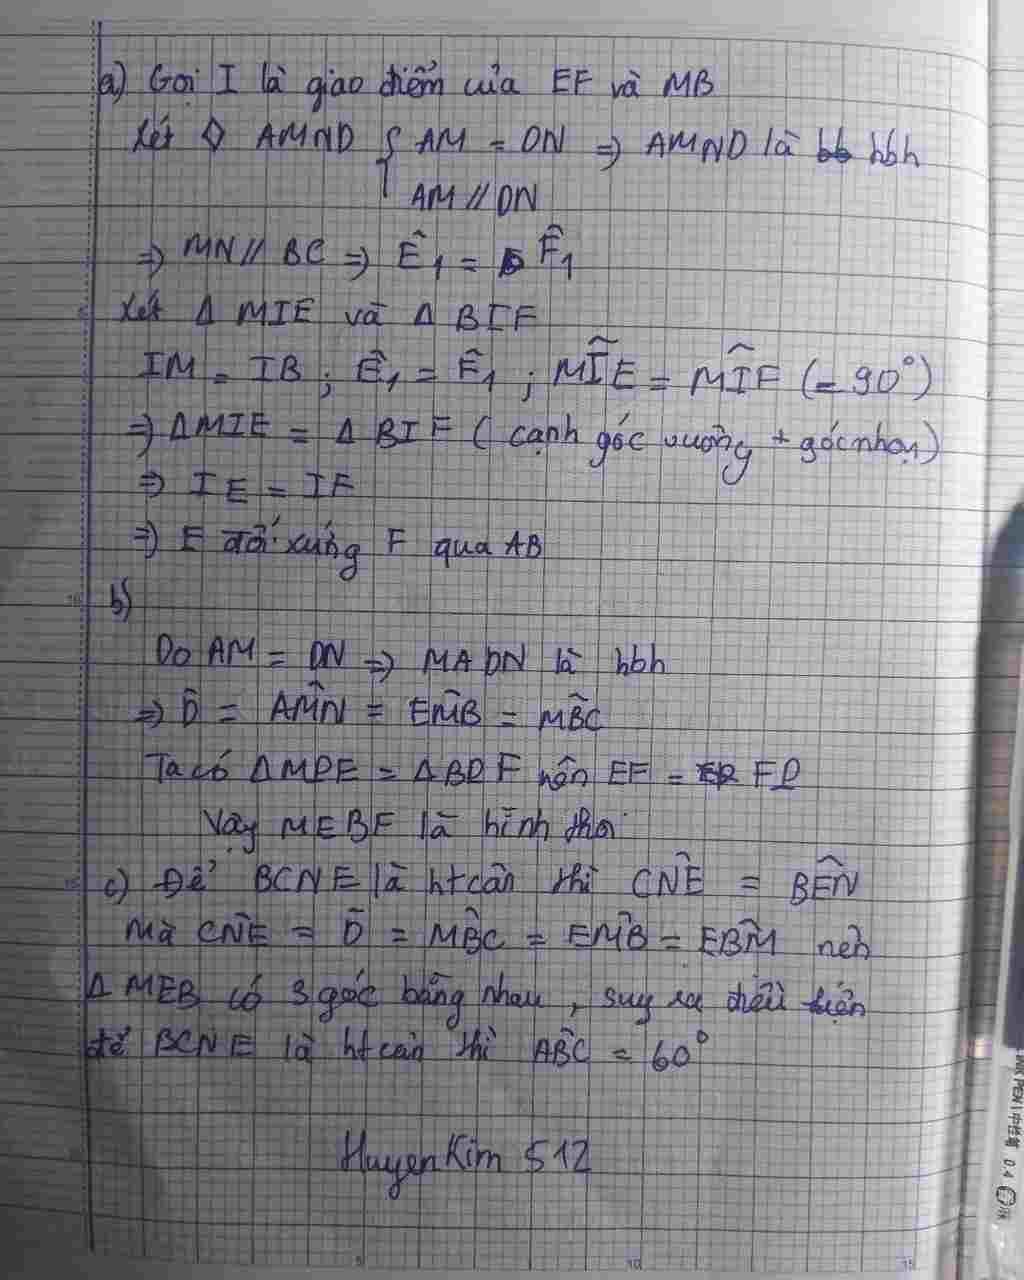 a) Gọi I là giao điểm của EF và MB
Xét ◊ AMND { AM = DN => AMND là hbh
AM // DN
=> MN // BC => Ê1 = F̂1
Xét Δ MIE và Δ BIF
IM = IB ; Ê1 = F̂1 ; MÎE = MÎF (= 90°)
=> ΔMIE = Δ BIF ( cạnh góc vuông + góc nhọn)
=> IE = IF
=> E đối xứng F qua AB
b)
Do AM = DN => MADN là hbh
=> D̂ = AM̂N = EM̂B = MB̂C
Ta có ΔMPE = ΔBPF nên EF = FP
Vậy MEBF là hình thoi
c) Để BCNE là htcân thì CN̂E = BÊN
Mà CN̂E = D̂ = MB̂C = EM̂B = EB̂M nên
Δ MEB có 3 góc bằng nhau, suy ra điều kiện
để BCNE là htcân thì AB̂C = 60°
HuyenKim 512
5 10 15
0.4